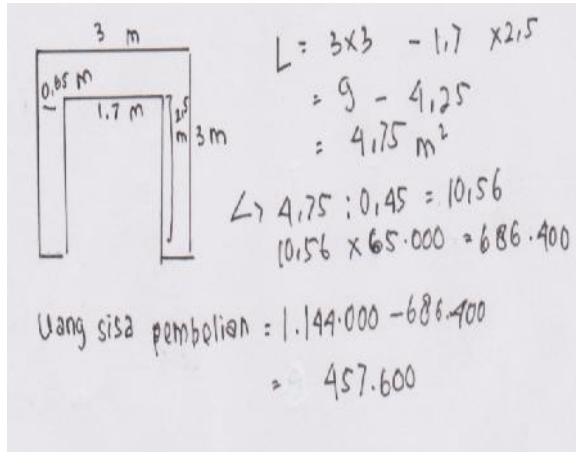 3 m
0,65 m
1.7 m
2,5 m
3 m
L = 3x3 - 1,7 x2,5
= 9 - 4,25
= 4,75 m²
↳ 4,75 : 0,45 = 10,56
10,56 x 65.000 = 686.400
Uang sisa pembelian = 1.144.000 - 686.400
= 457.600